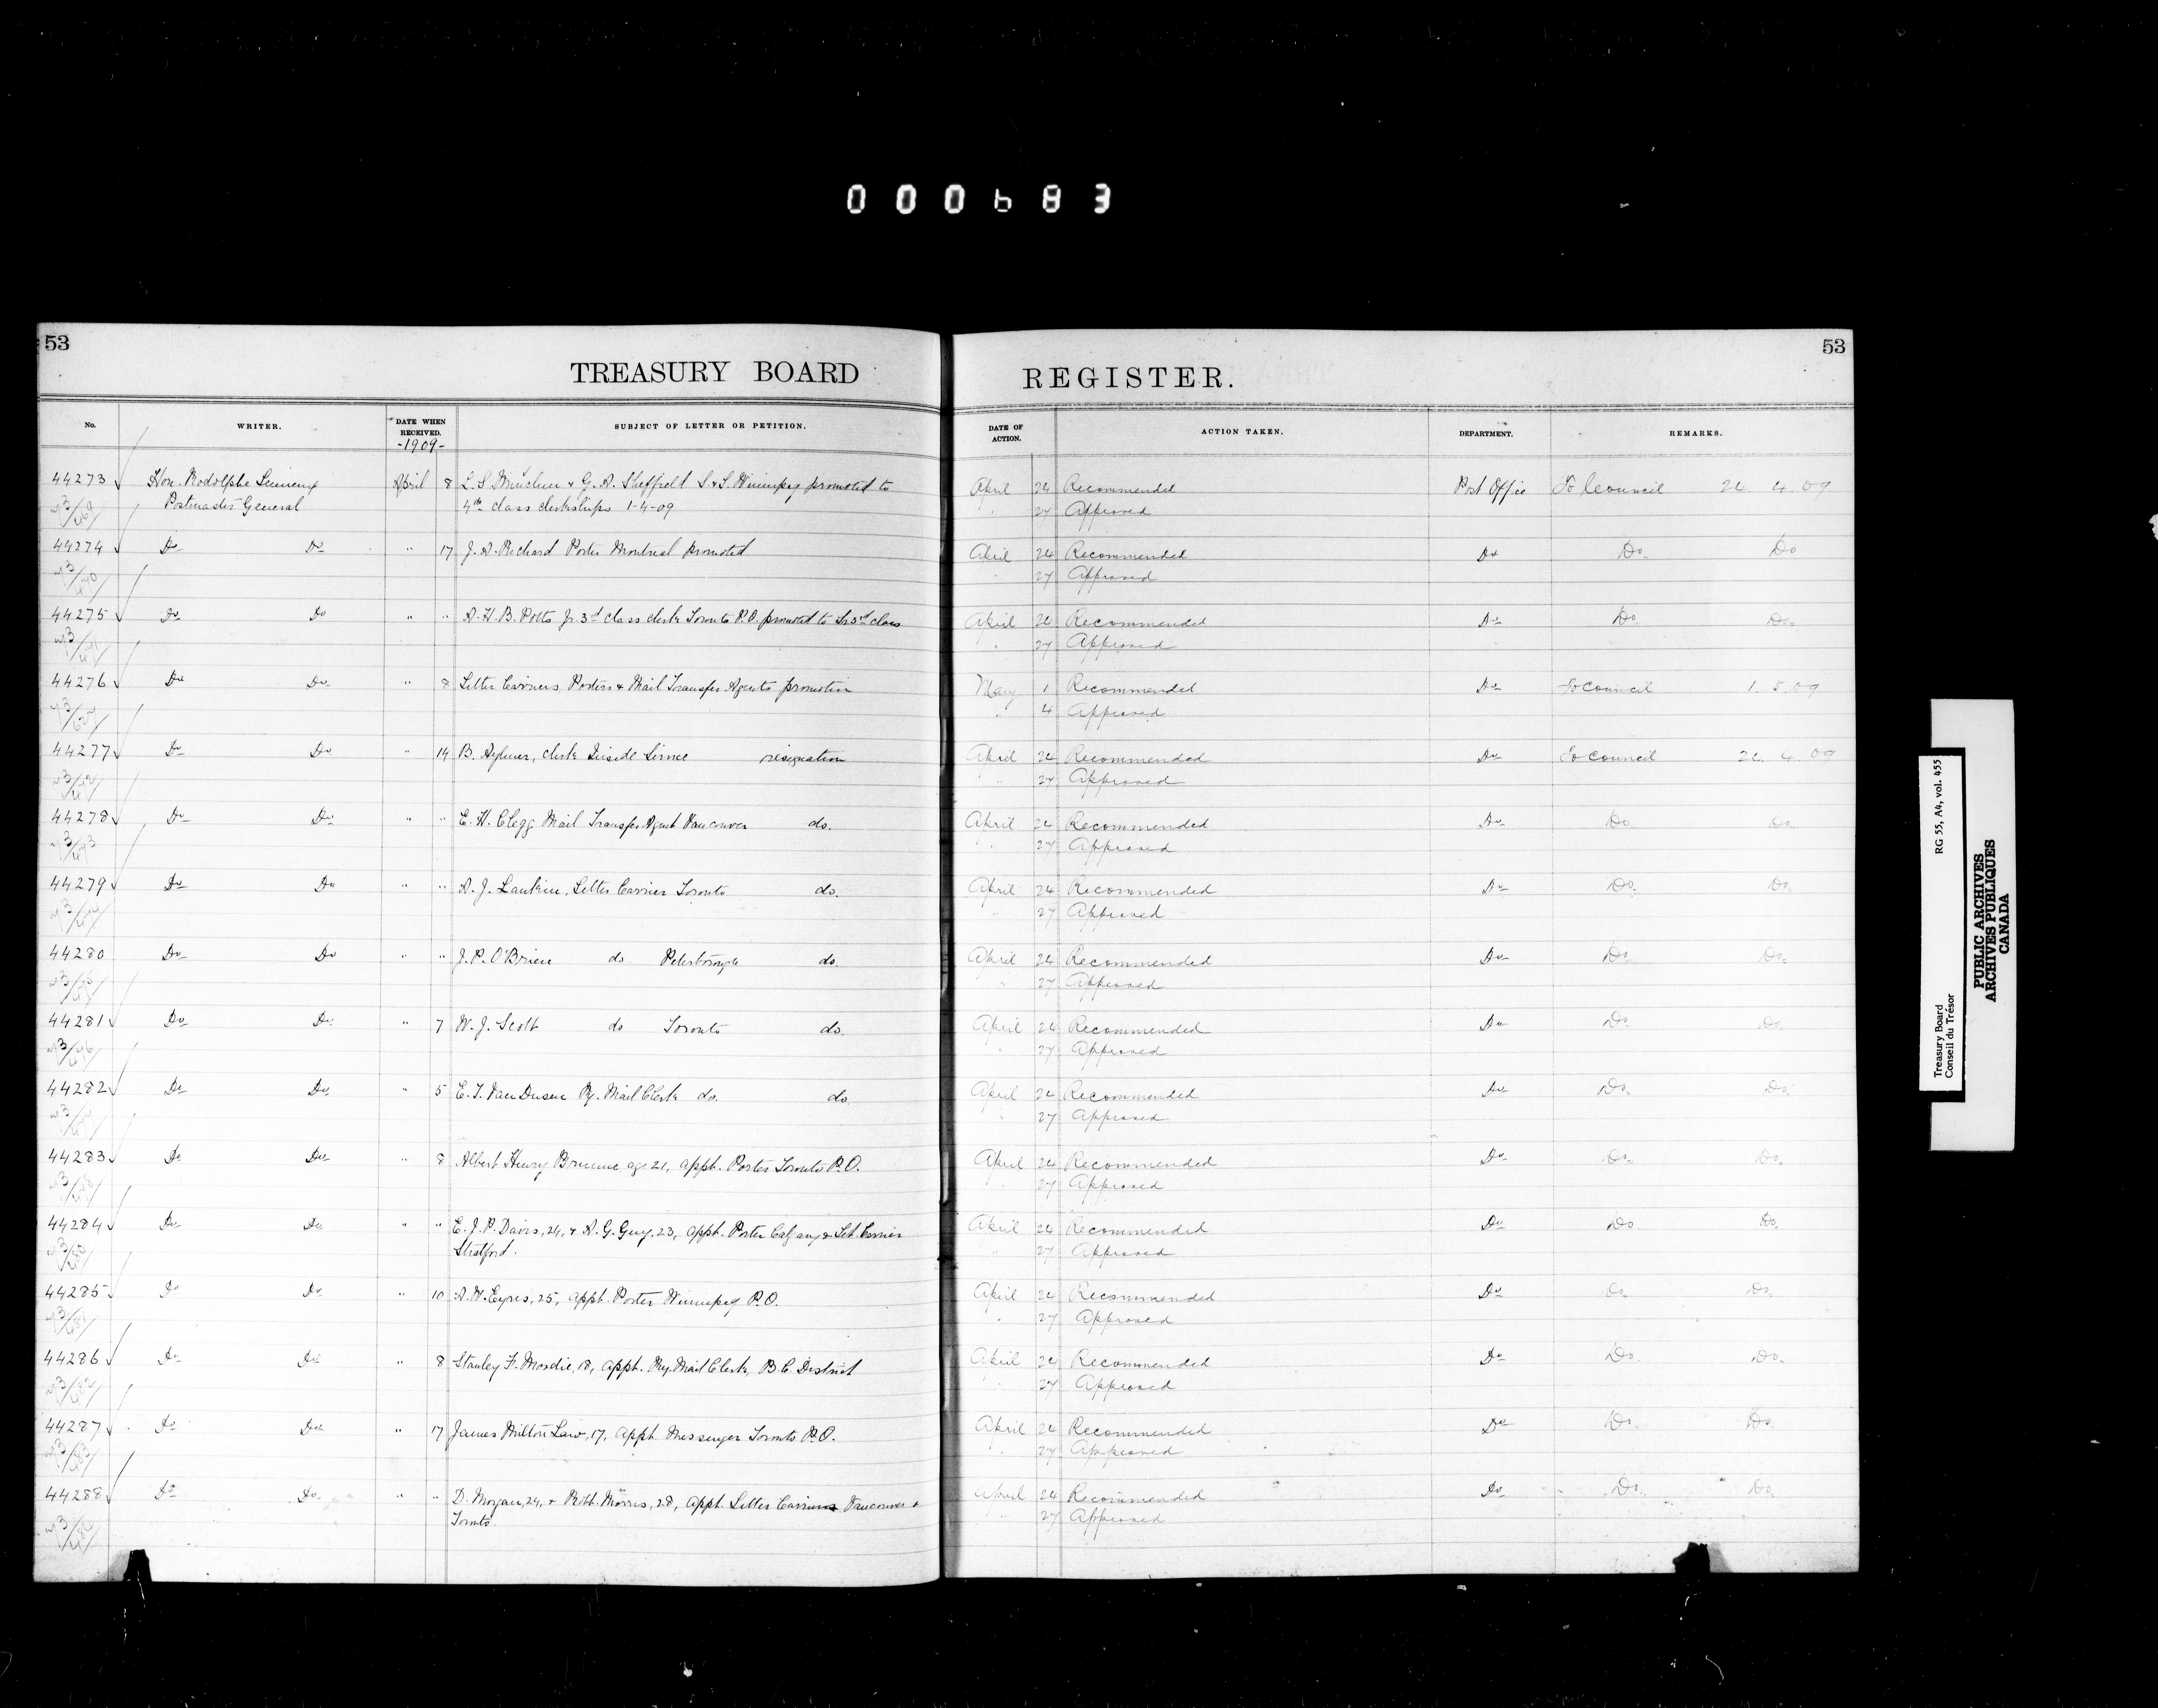 000683
53
TREASURY BOARD
REGISTER.
53
No. WRITER. DATE WHEN RECEIVED. SUBJECT OF LETTER OR PETITION. DATE OF ACTION. ACTION TAKEN. DEPARTMENT. REMARKS.
-1909-
44273 Hon. Rodolphe Lemieux April 8 L. S. & G. A. Sheffield S. & S. Winnipeg promoted to April 24 Recommended Post Office To Council 24. 4. 09
Postmaster General 4th class clerkships 1-4-09 " 27 Approved
44274 Do Do " 17 J. A. Richard Porter Montreal promoted April 24 Recommended Do Do. Do
" 27 Approved
44275 Do Do " " A. H. B. Potts Jr. 3rd class clerk Toronto P.O. promoted to Sr 3rd class April 24 Recommended Do Do. Do.
" 27 Approved
44276 Do Do " 8 Letter Carriers Porters & Mail Transfer Agents promotion May 1 Recommended Do To Council 1. 5. 09
" 4 Approved
44277 Do Do " 14 B. Aylmer, clerk Inside Service resignation April 24 Recommended Do To Council 24. 4. 09
" 27 Approved
44278 Do Do " " E. H. Clegg Mail Transfer Agent Vancouver do. April 24 Recommended Do Do. Do.
" 27 Approved
44279 Do Do " " A. J. Lankin, Letter Carrier Toronto do. April 24 Recommended Do Do. Do.
" 27 Approved
44280 Do Do " " J. P. O'Brien do Peterborough do. April 24 Recommended Do Do. Do.
" 27 Approved
44281 Do Do " 7 W. J. Scott do Toronto do. April 24 Recommended Do Do. Do.
" 27 Approved
44282 Do Do " 5 E. T. Van Dusen Ry. Mail Clerk do. do. April 24 Recommended Do Do. Do.
" 27 Approved
44283 Do Do " 8 Albert Henry age 21, appt. Porter Toronto P.O. April 24 Recommended Do Do. Do.
" 27 Approved
44284 Do Do " " E. J. P. Davis, 24, & A. G. Guy, 23, appt. Porter Calgary & Let. Carrier April 24 Recommended Do Do. Do.
Stratford. " 27 Approved
44285 Do Do " 10 A. W. Eyres, 25, appt. Porter Winnipeg P.O. April 24 Recommended Do Do. Do.
" 27 Approved
44286 Do Do " 8 Stanley F. 18, appt. Ry. Mail Clerk, B.C. District April 24 Recommended Do Do. Do.
" 27 Approved
44287 Do Do " 17 James Milton Law, 17, appt. Messenger Toronto P.O. April 24 Recommended Do Do. Do.
" 27 Approved
44288 Do Do. " " D. Morgan, 24, & Robt. Morris, 28, appt. Letter Carriers Vancouver & April 24 Recommended Do Do. Do.
Toronto. " 27 Approved
Treasury Board RG 55, A4, vol. 455
Conseil du Trésor
PUBLIC ARCHIVES
ARCHIVES PUBLIQUES
CANADA